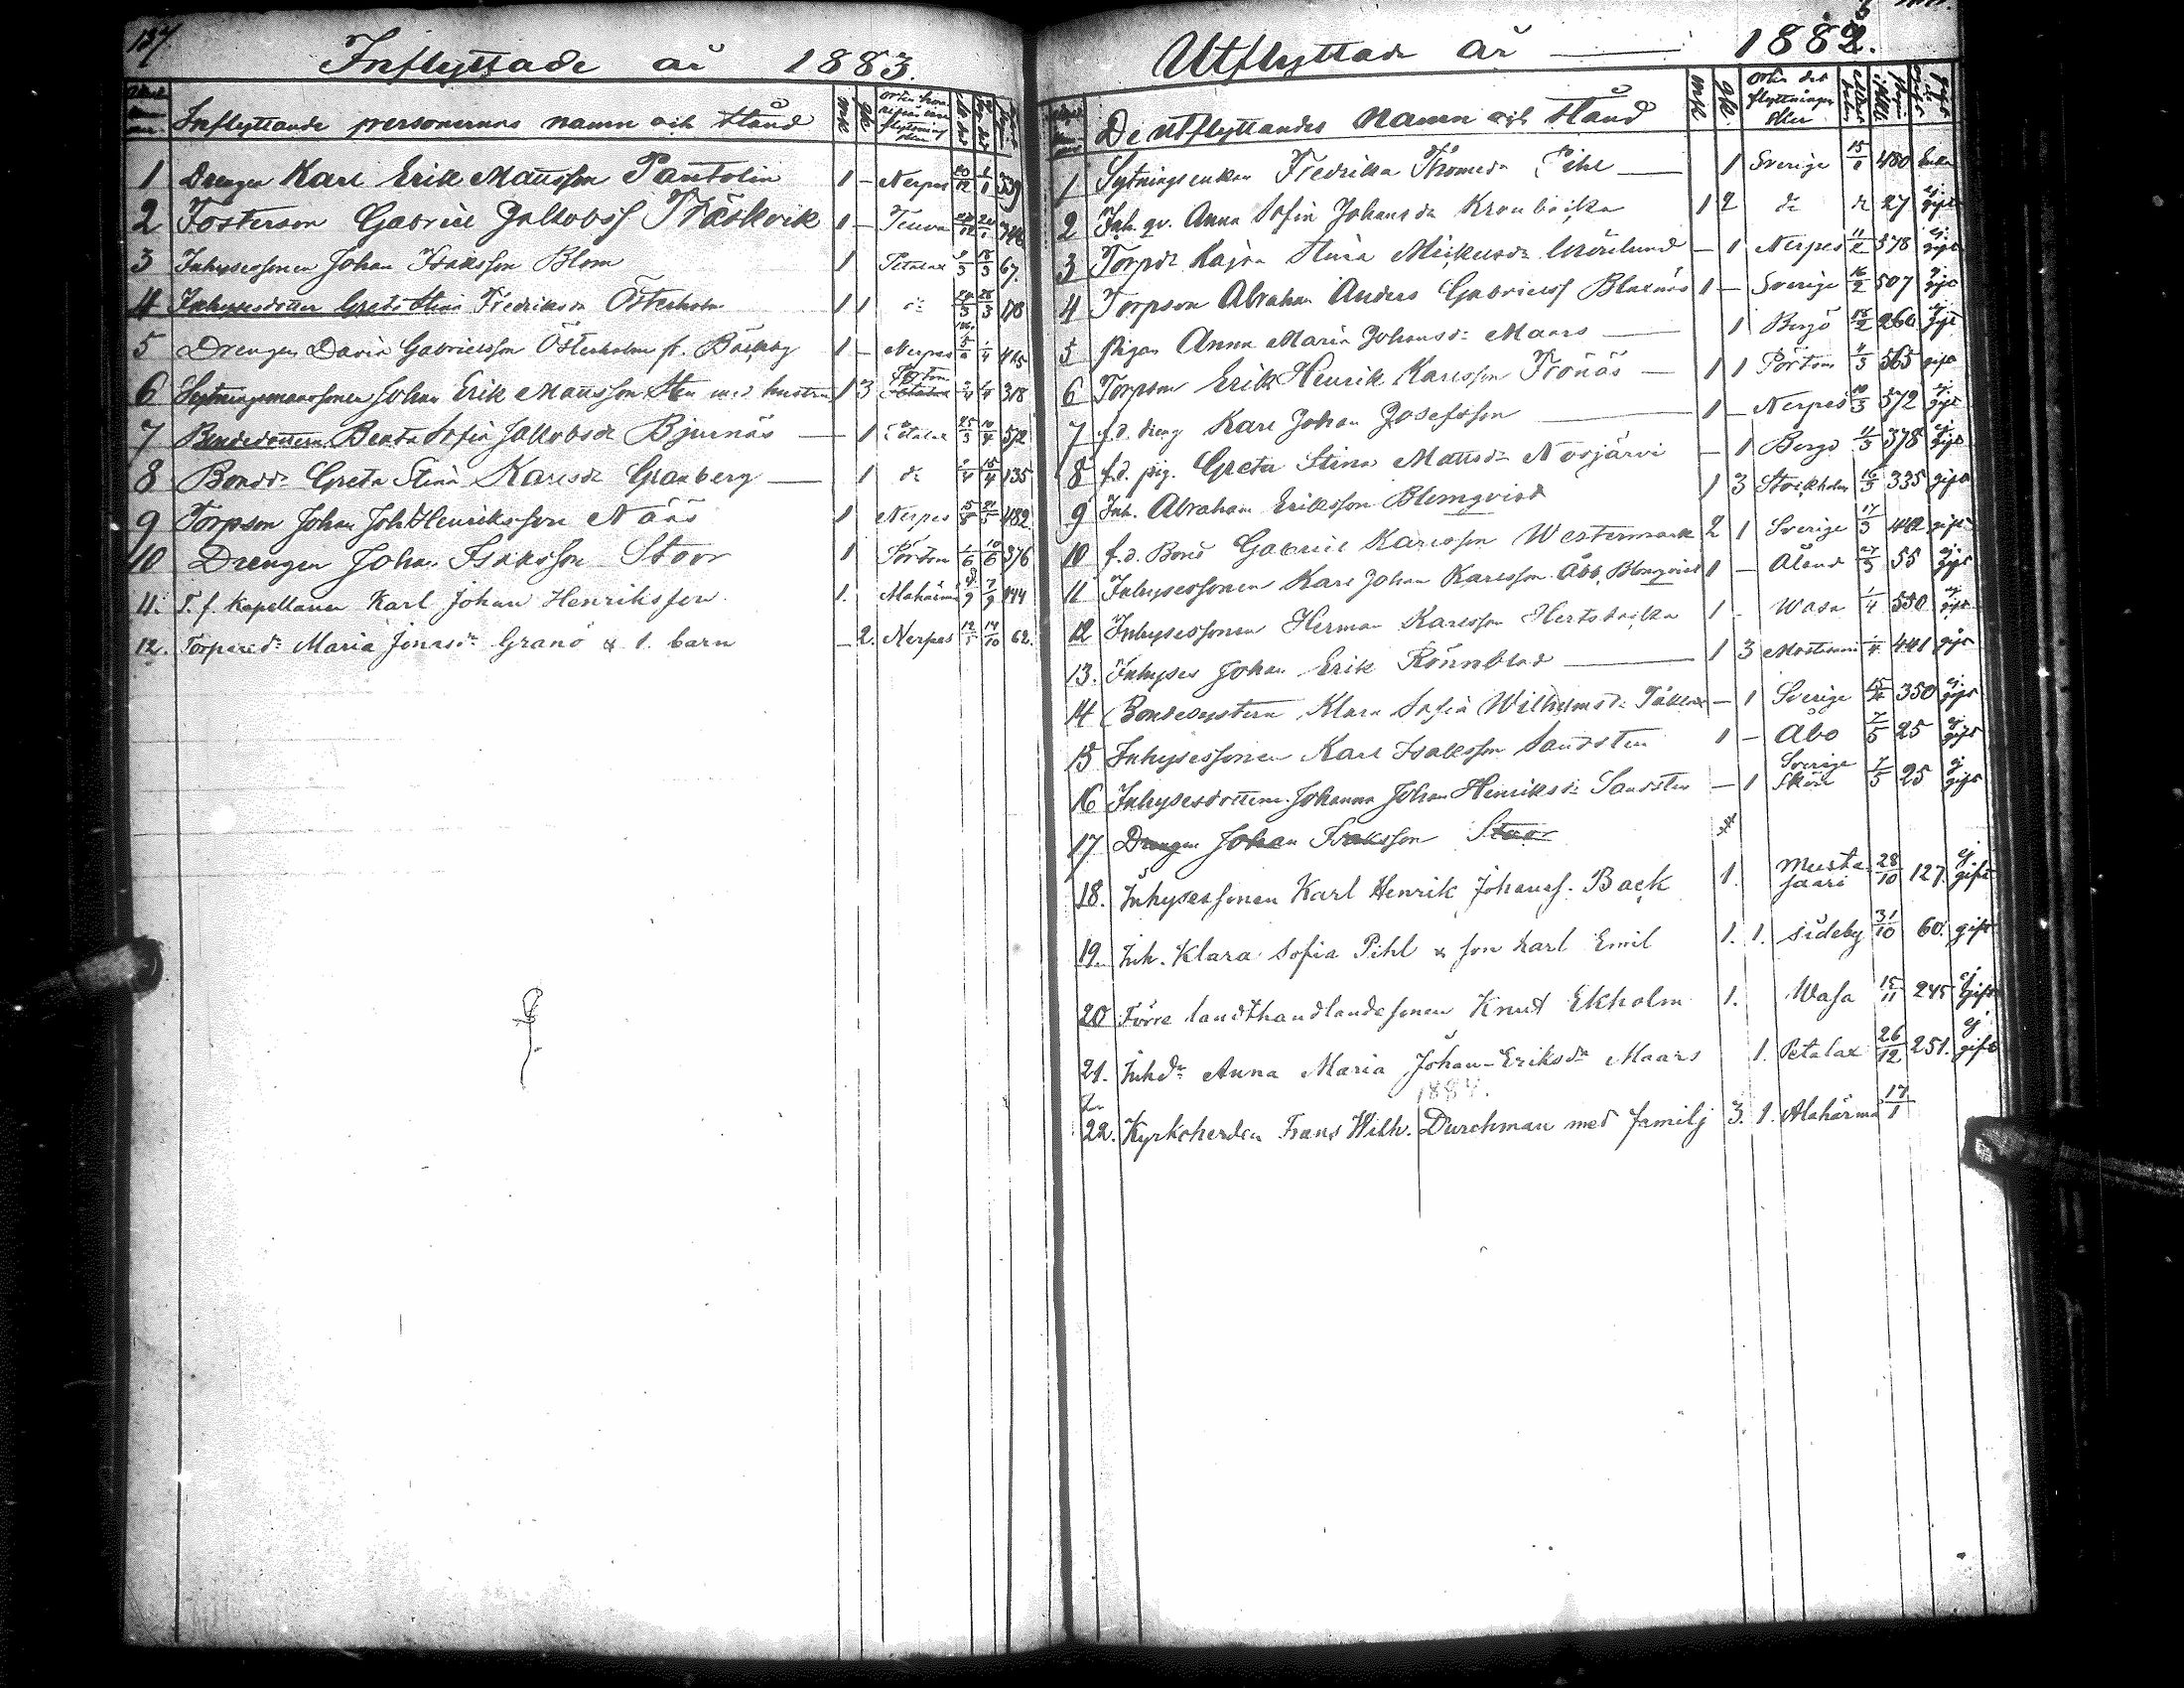 137.
Inflyttade år 1883.
Inflyttande personernas namn och stånd mk. qk.
1 Drengen Karl Erik Mattsson Pantolin 1 - Nerpes 20/12 539
2 Fosterson Gabriel Jakobss Träskvik 1 - Teuva
3 Inhysessonen Johan Isaksson Blom 1 Petalax 18/3 67.
4 Inhysesdottern Greta Stina Fredriksdr Österholm 1 1 dr 28/3 178
5 Drengen David Gabrielsson Österholm f. Backby 1 - Nerpes 1/4 415
6 Sytningsmanssonen Johan Erik Mattsson Sten med hustru 1 3 Pörtom 318
7 Bondedottern Beata Sofia Jakobsdr Bjurnäs — 1 Petalax 25/3 10/4 572
8 Bonddr Greta Stina Karlsdr Granberg — 1 dr 15/4 135
9 Torpson Johan Joh Henriksson Näss 1 Nerpes 482
10 Drengen Johan Isaksson Stoor 1 Pörtom 10/6 376
11. T. f. Kapellanen Karl Johan Henriksson 1. Alahärmä 7/9 144
12. Torparedr Maria Jonasdr Granö & 1. barn - 2. Nerpes 12/5 14/10 62.
Utflyttade år — 1882. 3
De utflyttandes namn och stånd mk. qk. Orten der flyttningen sker
1 Sytningsenkan Fredrika Thomasdr Pihl — 1 Sverige 480 enka
2 Inh. qv. Anna Sofia Johansdr Kronbäcka 1 2 dr dr 27 ej gift
3 Torpdr Kajsa Stina Mickelsdr Mörtlund - 1 Nerpes 11/2 378 ej gift
4 Torpson Abraham Anders Gabrielss Blaxnäs 1 - Sverige 16/2 507 ej gift
5 pigan Anna Maria Johansdr Maars — 1 Bergö 18/2 260 ej gift
6 Torpson Erik Henrik Karlsson Frönäs — 1 1 Pörtom 565 gift
7 f.d. dreng Karl Johan Josefsson — 1 - Nerpes 10/3 572 ej gift
8 f.d. pig. Greta Stina Mattsdr Norjärvi - 1 Bergö 11/3 378 ej gift
9 Inh. Abraham Eriksson Blomqvist 1 3 Stockholm 16/3 335 gift
10 f.d. Bond Gabriel Karlsson Westermark 2 1 Sverige 17/3 442 gift
11 Inhysessonen Karl Johan Karlsson Åbb, Blomqvist 1 - Åland 27/3 55 ej gift
12 Inhysessonen Herman Karlsson Hertsbacka 1 - Wasa 1/4 550 ej gift
13. Inhyses Johan Erik Rönnblad — 1 3 1/4 441 gift
14 Bondesystern Klara Sofia Wilhelmsdr - 1 Sverige 15/4 350 ej. gift
15 Inhysessonen Karl Isaksson Sandsten 1 - Åbo 7/5 25 ej gift
16 Inhysesdottern Johanna Johan Henriksdr Sandsten - 1 Sverige 7/5 25 ej gift
17 Drengen Johan Isaksson Stoor
18. Inhysessonen Karl Henrik Johanss. Back 1. Mustasaari 28/10 127. ej. gift
19. Inh. Klara Sofia Pihl & son Karl Emil 1. 1. Sideby 31/10 60. gift
20 Förre landthandlandesonen Knut Ekholm 1. Wasa 15/11 245 ej gift
21. Inhdr Anna Maria Johan-Eriksdr Maars 1. Petalax 26/12 251. ej gift
1884.
22. Kyrkoherden Frans Wilh. Durchman med familj 3. 1. Alahärmä 17/1